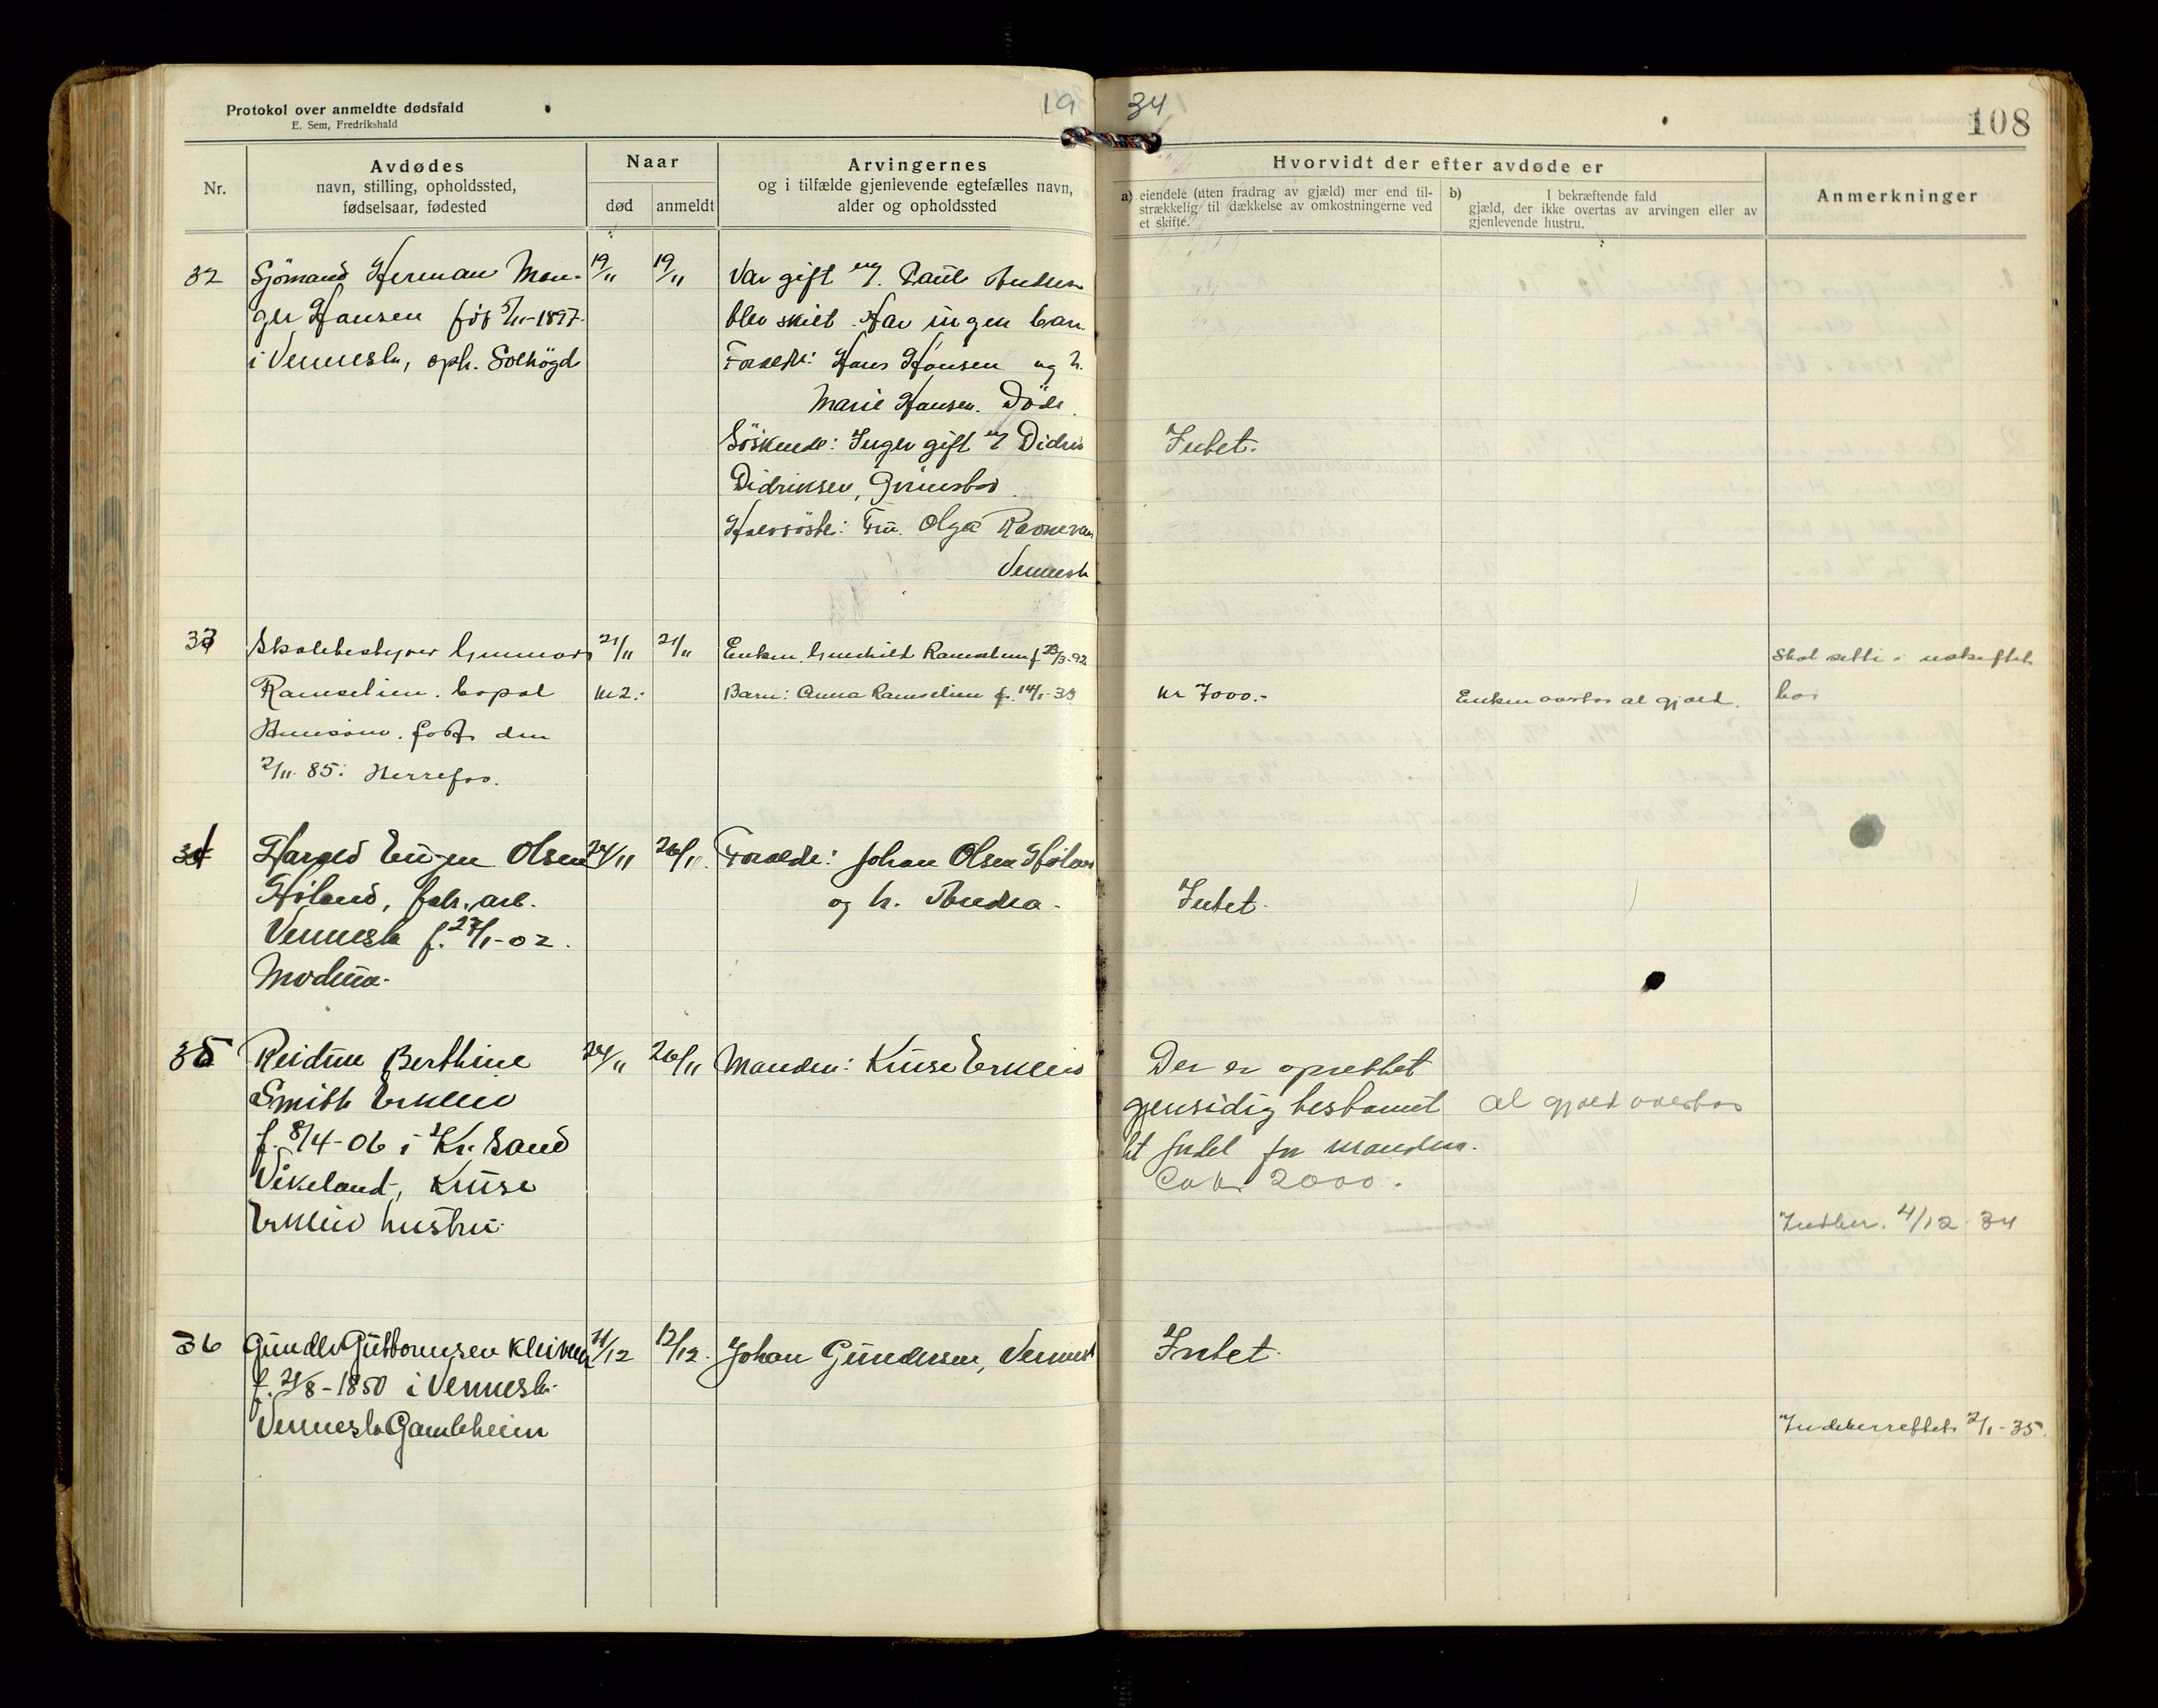 Protokol over anmeldte dødsfald
E. Sem, Fredrikshald
19 34
108
Nr.
Avdødes
navn, stilling, opholdssted,
fødselsaar, fødested
Naar
død
anmeldt
Arvingernes
og i tilfælde gjenlevende egtefælles navn,
alder og opholdssted
Hvorvidt der efter avdøde er
a) eiendele (uten fradrag av gjæld) mer end til-
strækkelig til dækkelse av omkostningerne ved
et skifte.
b) I bekræftende fald
gjæld, der ikke overtas av arvingen eller av
gjenlevende hustru.
Anmerkninger
32
Sjømand Herman
Hansen født 5/11-1897
i Vennesla, oph. Solhøgd
19/11
19/11
Var gift m/
blev skilt. Har ingen barn.
Foreldre: Hans Hansen og h.
Marie Hansen. Døde.
Søskende: Inger gift m/ Didrik
Didriksen, Grimstad
Halvsøster: Fru. Olga
Vennesla
Intet.
33
Skolebestyrer Gunnar
Ramselien.
født den
2/11 85. Herrefos.
21/11
kl 2.
21/11
Enken Gunhild Ramselien f 23/3-92
Barn: Anna Ramselien f. 14/1-35
kr 7000.-
Enken overtar al gjæld.
Skal sitte i uskiftet
bo
34
Harald Eugen Olsen
Høland, fabr. arb.
Vennesla f. 27/1-02.
Moseidmoen
24/11
26/11.
Foreldre: Johan Olsen Høland
og h. Andrea.
Intet.
35
Reidun Berthine
Smith Erkleiv
f. 8/4-06 i Kr. Sand
Vikeland, Kruse
Erkleiv hustru.
24/11
26/11
Manden: Kruse Erkleiv
Der er oprettet
gjensidig testament
til fordel for manden.
Ca kr. 2000.
al gjæld overtas
Indber. 4/12 34
36
Gunder Guttormsen Kleiven
f. 21/8-1850 i Vennesla.
Vennesla Gamleheim
11/12
12/12.
Johan Gundersen, Vennesla
Intet.
Indeberettet 2/1-35.